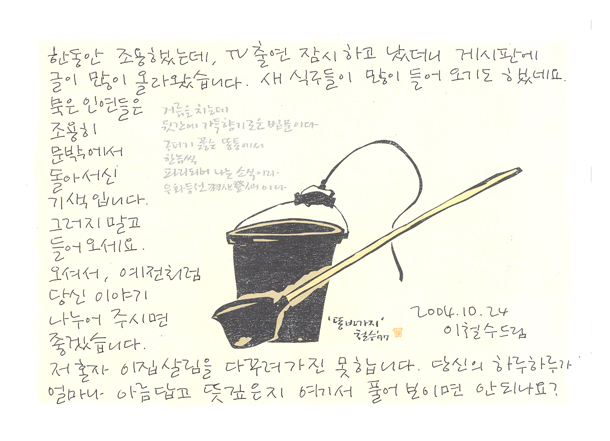 한동안 조용했는데, TV 출연 잠시 하고 났더니 게시판에
글이 많이 올라왔습니다. 새 식구들이 많이 들어 오기도 했네요.
묵은 인연들은
조용히
문밖에서
돌아서신
기색입니다.
그러지 말고
들어오세요.
오셔서, 예전처럼
당신 이야기
나누어 주시면
좋겠습니다.
저 혼자 이 집 살림을 다 꾸려가진 못합니다. 당신의 하루하루가
얼마나 아름답고 뜻깊은지 여기서 풀어 보이면 안되나요?
거름을 치는데
뒷간에 가득 향기로운
구더기 끓는 똥통에서
한 놈씩
파리되어 나는 소식이라
우화등선
'똥바가지'
철수 97
2004.10.24
이철수 드림